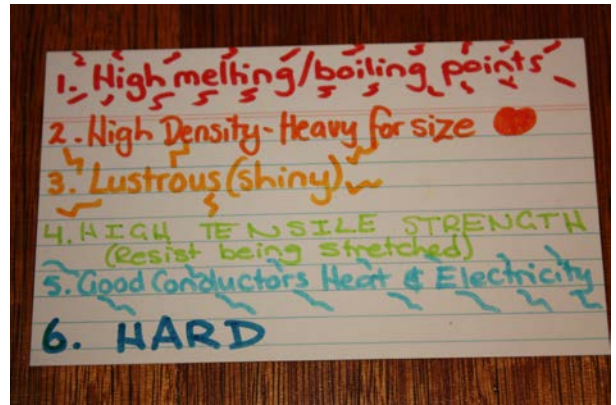 1. High melting/boiling points
2. High Density-Heavy for size
3. Lustrous (shiny)
4. HIGH TENSILE STRENGTH
(Resist being stretched)
5. Good Conductors Heat & Electricity
6. HARD